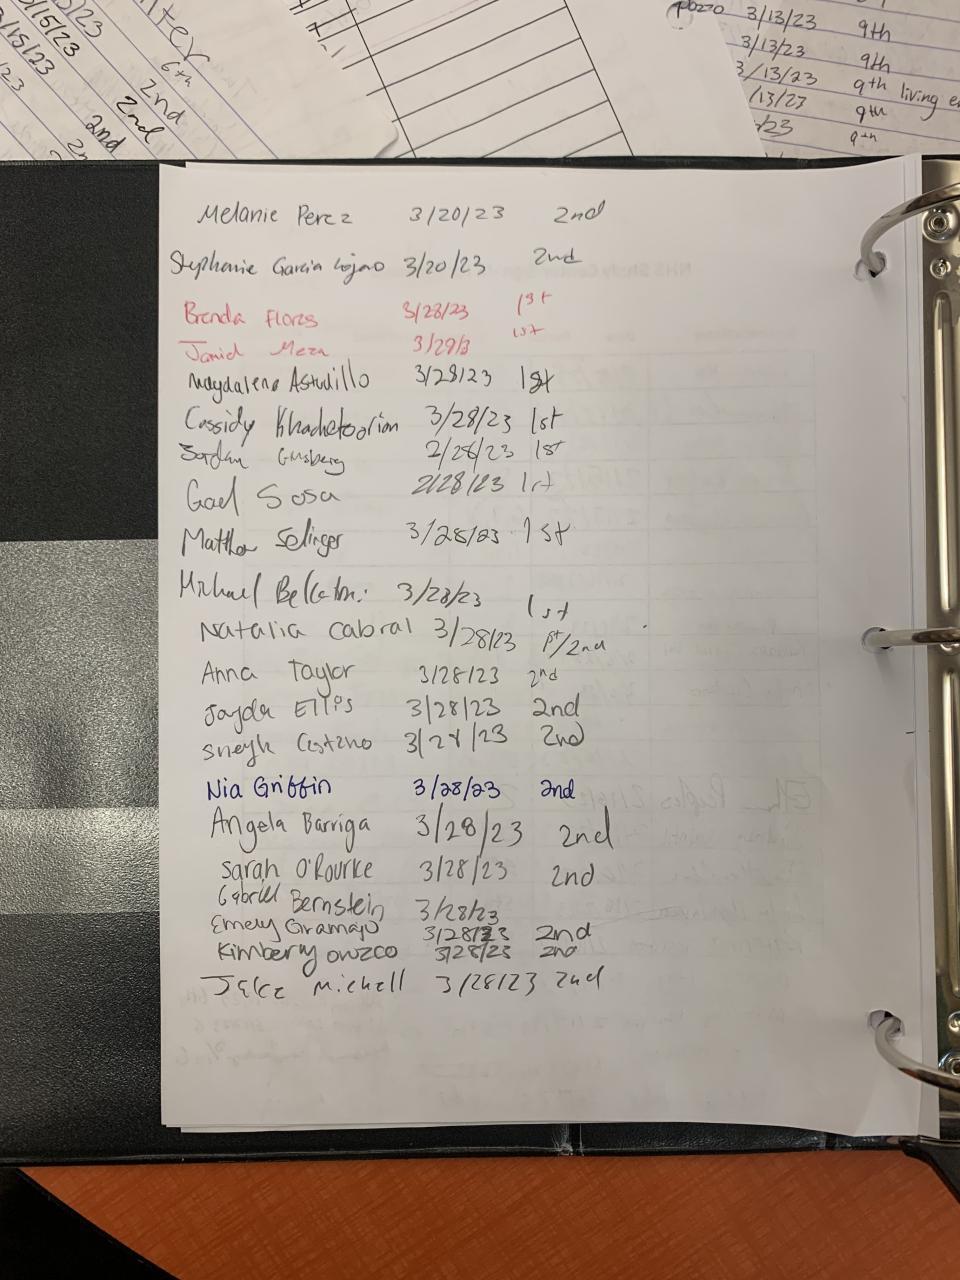 3/15/23
3/15/23
nter
6th
2nd
2nd
2nd
pozo 3/13/23 9th
3/13/23 9th
3/13/23 9th living e
/13/23 9th
/23 9th
Melanie Perez 3/20/23 2nd
Stephanie Garcia Lojano 3/20/23 2nd
Brenda Flores 3/28/23 1st
Jamid Meza 3/29/3 1st
Magdalena Astudillo 3/28/23 1st
Cassidy Khachatoorian 3/28/23 1st
Jordan Ginsberg 2/28/23 1st
Gael Sosa 2/28/23 1st
Matthew Selinger 3/28/23 1st
Michael 3/28/23 1st
Natalia Cabral 3/28/23 1st/2nd
Anna Taylor 3/28/23 2nd
Jayda Ellis 3/28/23 2nd
3/28/23 2nd
Nia Griffin 3/28/23 2nd
Angela Barriga 3/28/23 2nd
Sarah O'Rourke 3/28/23 2nd
Gabriel Bernstein 3/28/23
Emely Gramajo 3/28/23 2nd
Kimberly Orozco 3/28/23 2nd
Jake Michell 3/28/23 2nd